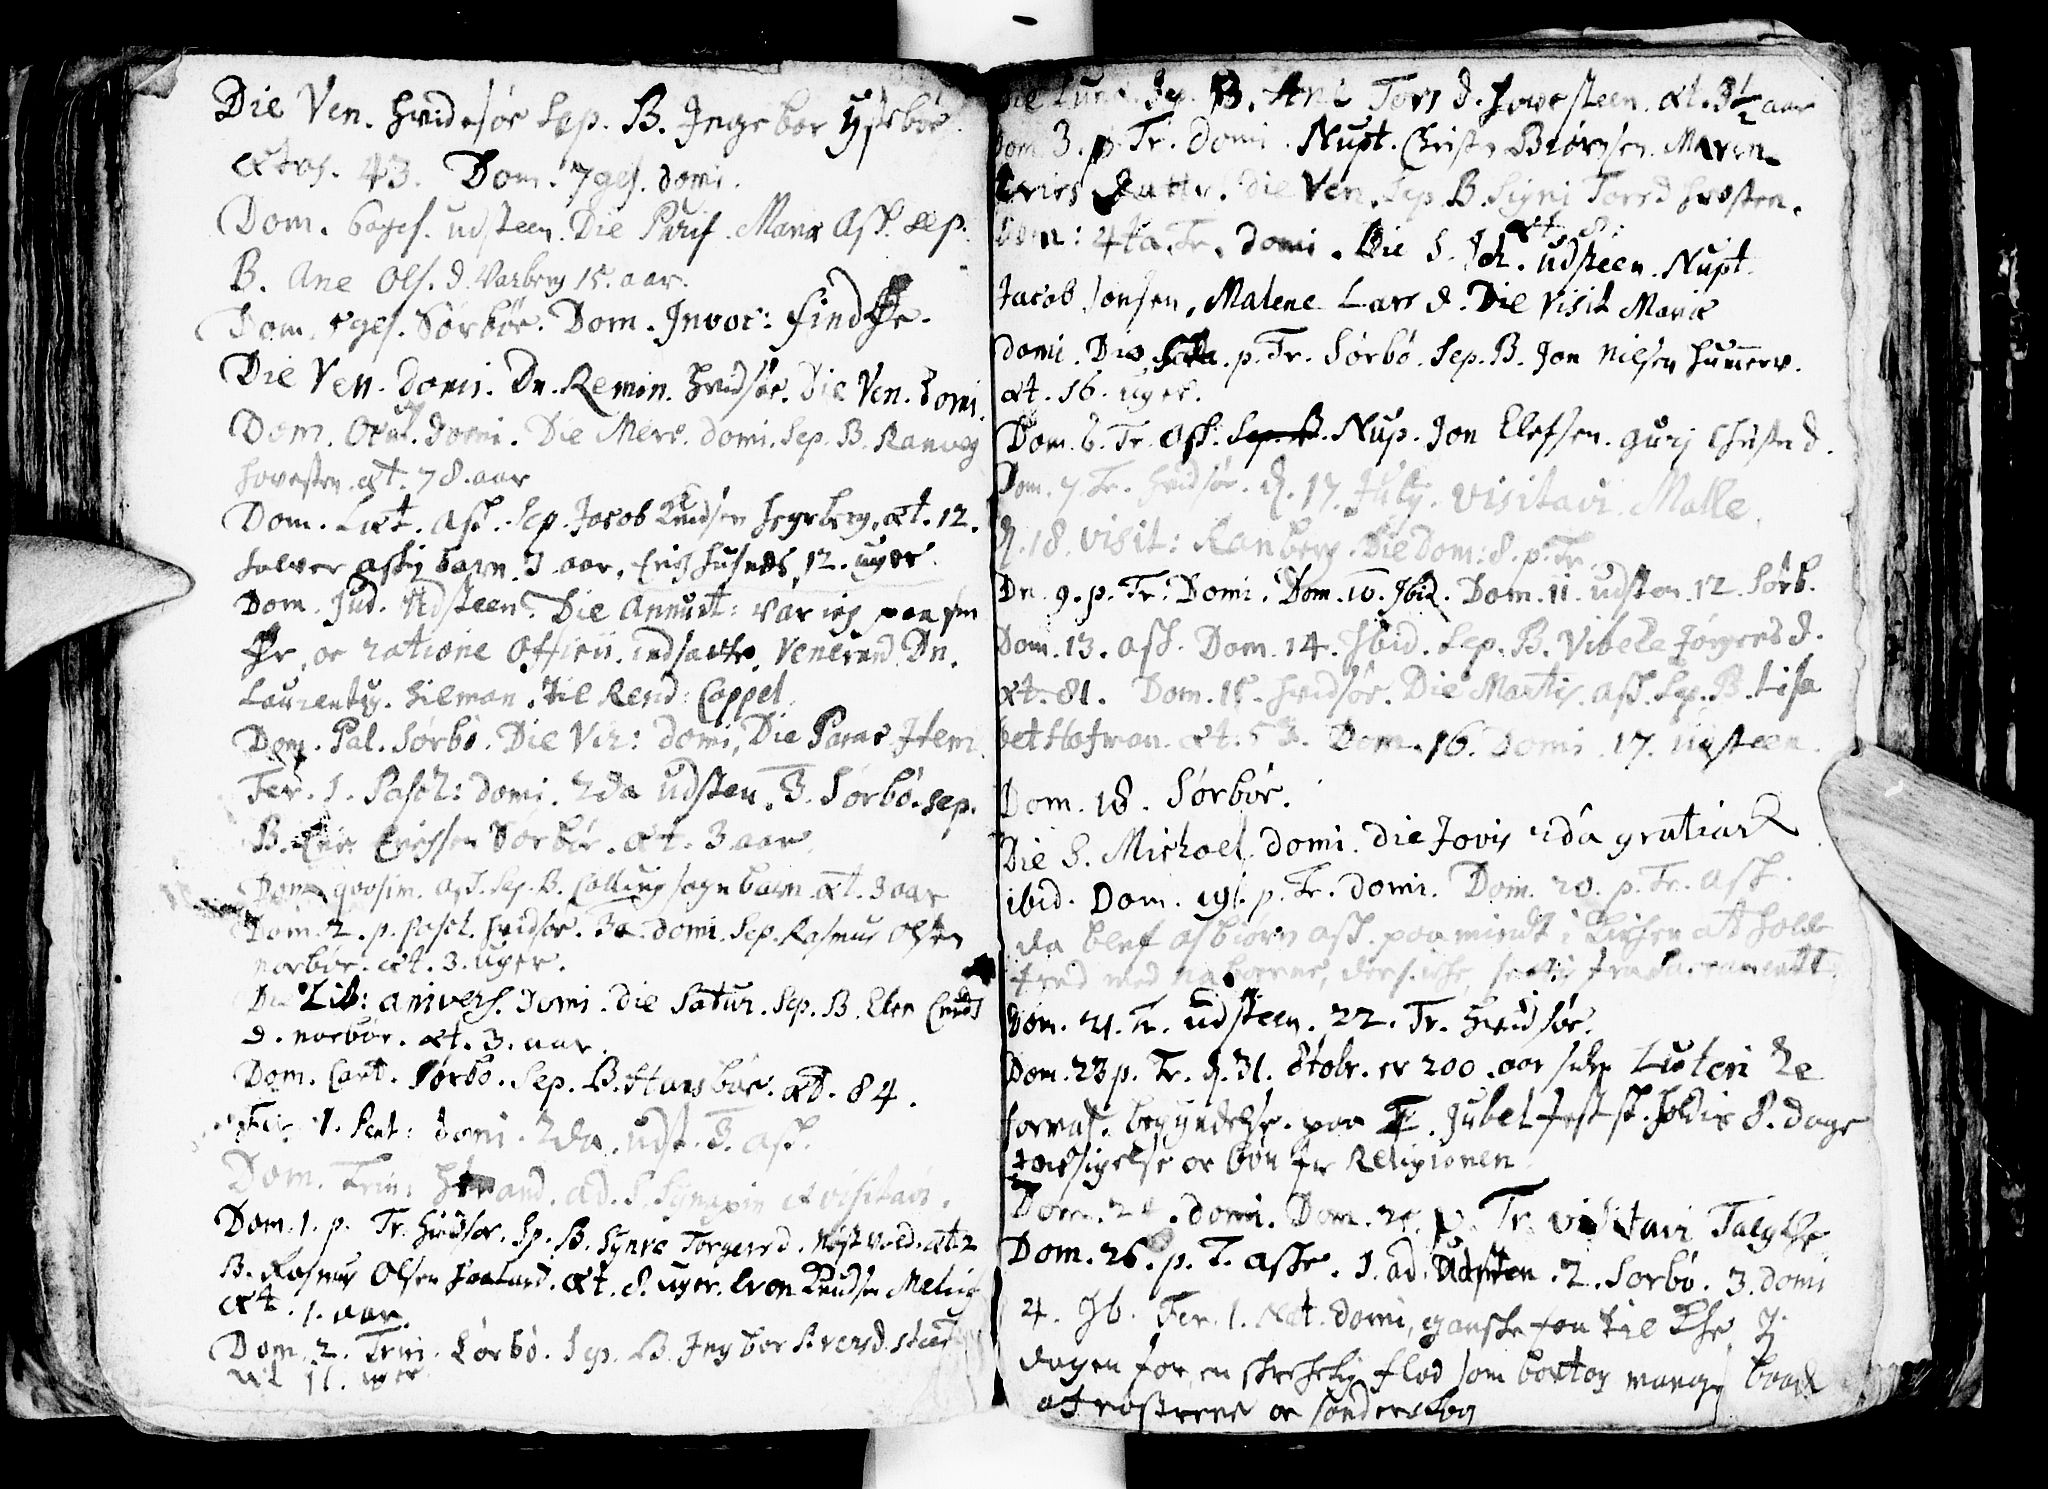 Die Ven. Hvidsøe Sep. B. Ingebor Ystebøe
ætat. 43. Dom. 7ges. domi.
Dom. 6ages. udsteen. Die Purif. Mariæ Ask. sep.
B. Ane Ols. d. Varberg 15. aar.
Dom. 5ges. Sørbøe. Dom. Invoc: find
Die Ven. domi. Dn. Remin. Hvidsøe. Die Ven. domi.
Dom. Ocul. domi. Die Merc. domi. Sep. B. Ranveg
Hovesten. æt. 78. aar
Dom. Læt. Ask. Sep. Jacob Knudsen Hegrberg. æt. 12.
Halvor Aske barn. 3 aar, Erich Husnes, 12. uger.
Dom. Jud. Udsteen. Die Annunt: var jeg paa
oc ratione Officii indsatte, Venerand. Dn.
Laurentij. Hilman. til Resid: Cappel.
Dom. Pal. Sørbø. Die Vir: domi, Die Paras Item
Fer. 1. Pasch: domi. 2da udsten. 3. Sørbø. sep.
B. Eric Erichsen Sørbøe. æt. 3 aar
Dom. qvasim. Ask. Sep. B. barn æt. 3 aar
Dom. 2. p. pasch. Hvidsøe. 3a domi. Sep. Rasmus Olsen
norbøe. æt. 3. uger.
Die Lib: anivers. domi. die Satur. Sep. B. Elen Cnuds
d. norbøe. æt. 3. aar.
Dom. Cant. Sørbø. Sep. B. æt. 84.
Fer. 1. Pent: domi. 2da. udst. 3. Ask.
Dom. Trin: ad. S. Synaxin et visitavi.
Dom. 1. p. Tr. Hvidsøe. Sp. B. Synve Torgersd. æt. 2
B. Rasmus Olsen Haaland. æt. 8. uger. Knudsen Meling
æt. 1. aar.
Dom. 2. Trin. Sørbø. Sep. B. Ingbor
æt 11. uger
Die Lunæ. Sep. B. Ane Tors d. Hovesteen. æt. 3½ aar
Dom. 3. p. Tr. domi. Nupt. Christen Biørnsen. Maren
Erics datter. Die Ven. Sep. B. Signi Torsd Hovsten.
æt. 8.
Dom: 4ta Tr. domi. Die S. Joh. udsteen. Nupt.
Jacob Jonsen, Malene Lars d. Die Visit Mariæ
domi. Die p. Tr. Sørbø. Sep. B. Jon Nielsen
æt. 16. uger.
Dom. 6. Tr. Ask. Sep. B. Nup. Jon Elefsen. Gurj d.
Dom. 7 Tr. Hvidsøe. d. 17. July. visitavi. Malle.
d. 18. visit: Ranberg. Die Dom: 8. p. Tr.
Dn. 9. p. Tr. Domi. Dom. 10. Ibid. Dom. 11. udsten. 12. Sørb.
Dom. 13. Ask. Dom. 14. Ibid. Sep. B. Vibeke Jørgens d.
æt. 81. Dom. 15. Hvidsøe. Die Martis. Ask. Sep. B. Lisa
bet Hofman. æt. 53. Dom. 16. domi. 17. udsteen.
Dom. 18. Sørbøe.
Die S. Michael. domi. die Jovis 2da gratiar
ibid. Dom. 19. p. Tr. domi. Dom. 20. p. Tr. Ask.
da blef Asbiørn Ask. paamindt i Kirken at holde
fred med naboerne, Sacramentet.
Dom. 21. Tr. udsteen. 22. Tr. Hvidsøe.
Dom. 23 p. Tr. d. 31. Octobr. er 200. aar siden Luteri Re
format. begyndelse. paa Jubel fest holdis 8. dage
tacksigelse oc bøn for Religionen.
Dom. 24. domi. Dom. 25. p. Tr. visitavi Talgke
Dom. 26. p. T. Aske. 1. ad. Udsten. 2. Sorbø. 3. domi
4. Ib. Fer. 1. Nat. domi, ganske faa til
dagen for, en flod som borttog mange baade
oc sønderslog